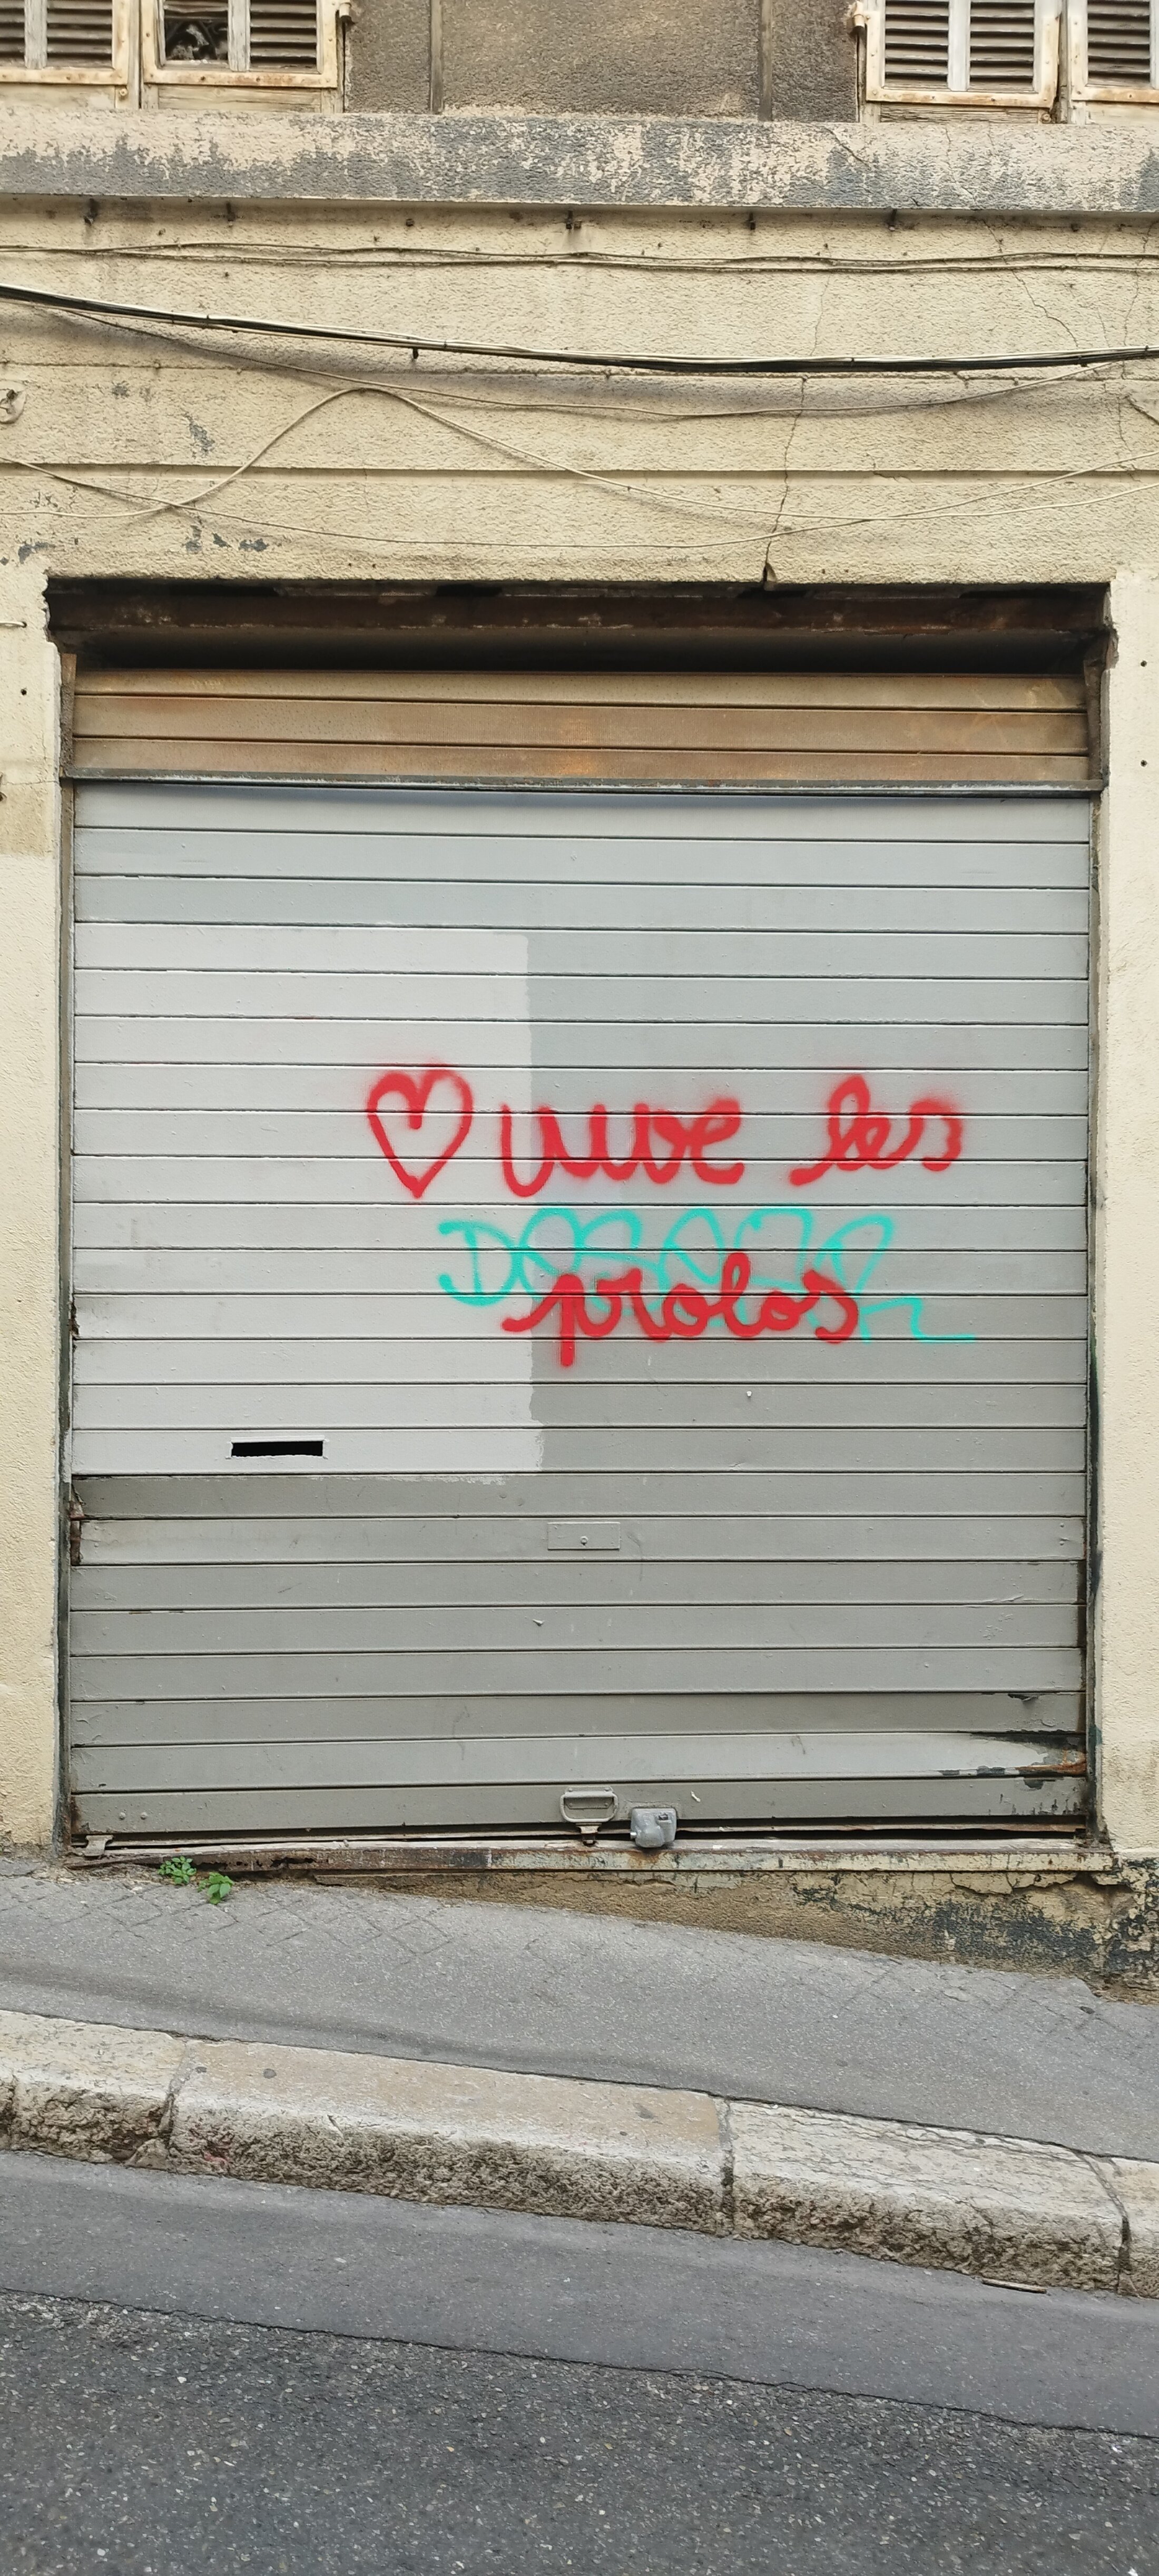 ♡ vive les
prolos